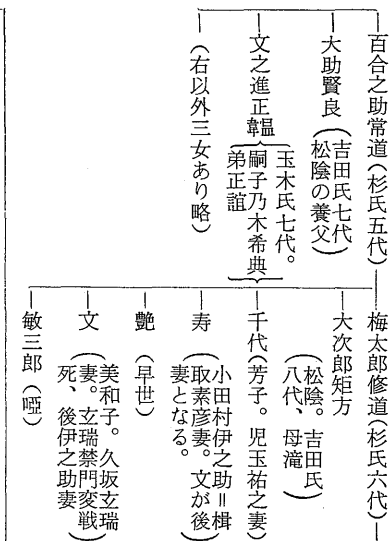 百合之助常道(杉氏五代)
大助賢良(吉田氏七代
松陰の養父)
文之進正韞
玉木氏七代。
嗣子乃木希典
弟正誼
(右以外三女あり略)
梅太郎修道(杉氏六代)
大次郎矩方
(松陰。吉田氏
八代、母滝)
千代(芳子。児玉祐之妻)
寿(小田村伊之助=楫
取素彦妻。文が後
妻となる。)
艶(早世)
文(美和子。久坂玄瑞
妻。玄瑞禁門変戦
死、後伊之助妻)
敏三郎(啞)